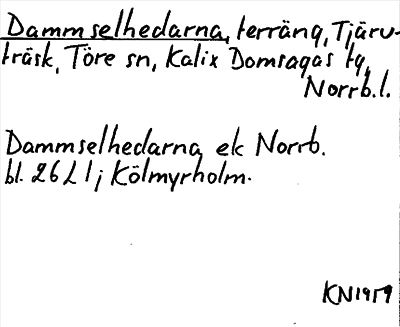 Dammselhedarna, terräng, Tjäru-
träsk, Töre sn, Kalix Domsagas tg,
Norrb.l.
Dammselhedarna ek Norrb.
bl. 26L1; Kölmyrholm.
KN1959